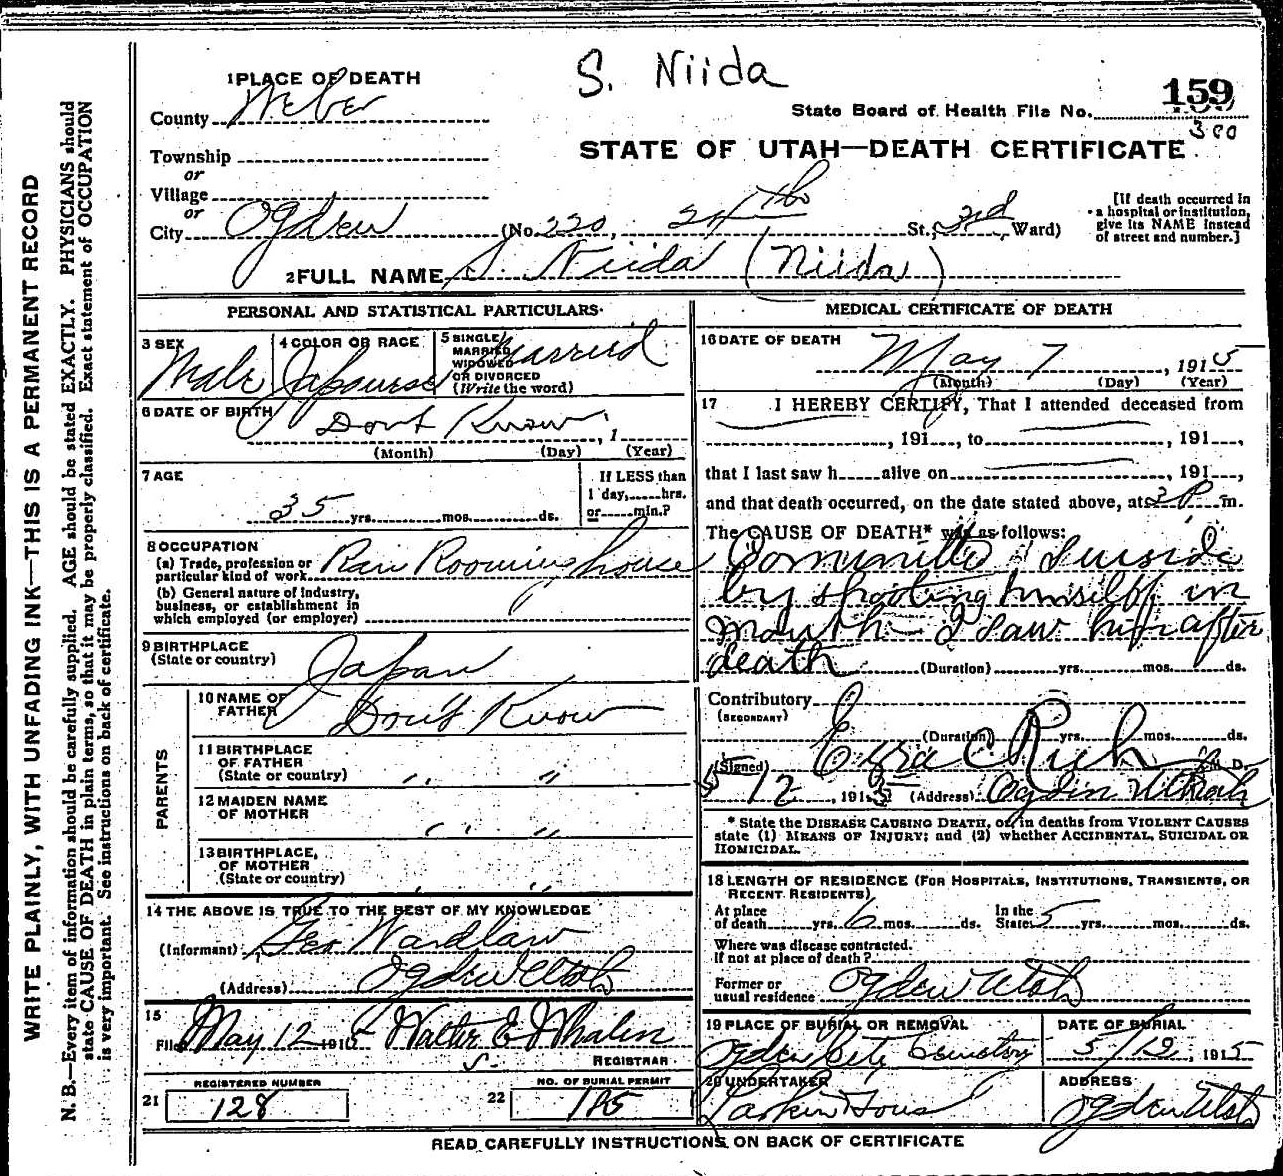 S. Niida
1 PLACE OF DEATH
County Weber
State Board of Health File No. 159
300
Township
STATE OF UTAH—DEATH CERTIFICATE
or
Village
or
City Ogden (No. 220, 24th St., 3rd Ward)
[If death occurred in
a hospital or institution,
give its NAME instead
of street and number.]
2 FULL NAME S. Niida (Niida)
PERSONAL AND STATISTICAL PARTICULARS
3 SEX
Male
4 COLOR OR RACE
Japanese
5 SINGLE
MARRIED
WIDOWED
OR DIVORCED
(Write the word)
Married
6 DATE OF BIRTH
Dont Know, 1
(Month) (Day) (Year)
7 AGE
35 yrs. mos. ds.
If LESS than
1 day, hrs.
or min.?
8 OCCUPATION
(a) Trade, profession or
particular kind of work Ran Rooming house
(b) General nature of industry,
business, or establishment in
which employed (or employer)
9 BIRTHPLACE
(State or country) Japan
PARENTS
10 NAME OF
FATHER Don't Know
11 BIRTHPLACE
OF FATHER
(State or country) " "
12 MAIDEN NAME
OF MOTHER " "
13 BIRTHPLACE,
OF MOTHER
(State or country) " "
14 THE ABOVE IS TRUE TO THE BEST OF MY KNOWLEDGE
(Informant) Geo Wardlaw
(Address) Ogden Utah
15
Filed May 12 1915 Walter E Whalen
S. REGISTRAR
REGISTERED NUMBER
21 128
NO. OF BURIAL PERMIT
22 185
MEDICAL CERTIFICATE OF DEATH
16 DATE OF DEATH
May 7, 1915
(Month) (Day) (Year)
17 I HEREBY CERTIFY, That I attended deceased from
, 191 , to , 191 ,
that I last saw h alive on , 191 ,
and that death occurred, on the date stated above, at 2 P m.
The CAUSE OF DEATH* was as follows:
Committed Suicide
by shooting himself in
mouth - I saw him after
death (Duration) yrs. mos. ds.
Contributory
(SECONDARY)
(Duration) yrs. mos. ds.
(Signed) Ezra C Rich M. D.
5/12, 1915 (Address) Ogden Utah
* State the DISEASE CAUSING DEATH, or, in deaths from VIOLENT CAUSES
state (1) MEANS OF INJURY; and (2) whether ACCIDENTAL, SUICIDAL OR
HOMICIDAL.
18 LENGTH OF RESIDENCE (FOR HOSPITALS, INSTITUTIONS, TRANSIENTS, OR
RECENT RESIDENTS)
At place
of death yrs. 6 mos. ds.
In the
State 5 yrs. mos. ds.
Where was disease contracted.
If not at place of death?
Former or
usual residence Ogden Utah
19 PLACE OF BURIAL OR REMOVAL
Ogden City Cemetery
DATE OF BURIAL
5/12, 1915
20 UNDERTAKER
Larkin & Sons
ADDRESS
Ogden Utah
READ CAREFULLY INSTRUCTIONS ON BACK OF CERTIFICATE
WRITE PLAINLY, WITH UNFADING INK—THIS IS A PERMANENT RECORD
N. B.—Every item of information should be carefully supplied. AGE should be stated EXACTLY. PHYSICIANS should
state CAUSE OF DEATH in plain terms, so that it may be properly classified. Exact statement of OCCUPATION
is very important. See instructions on back of certificate.